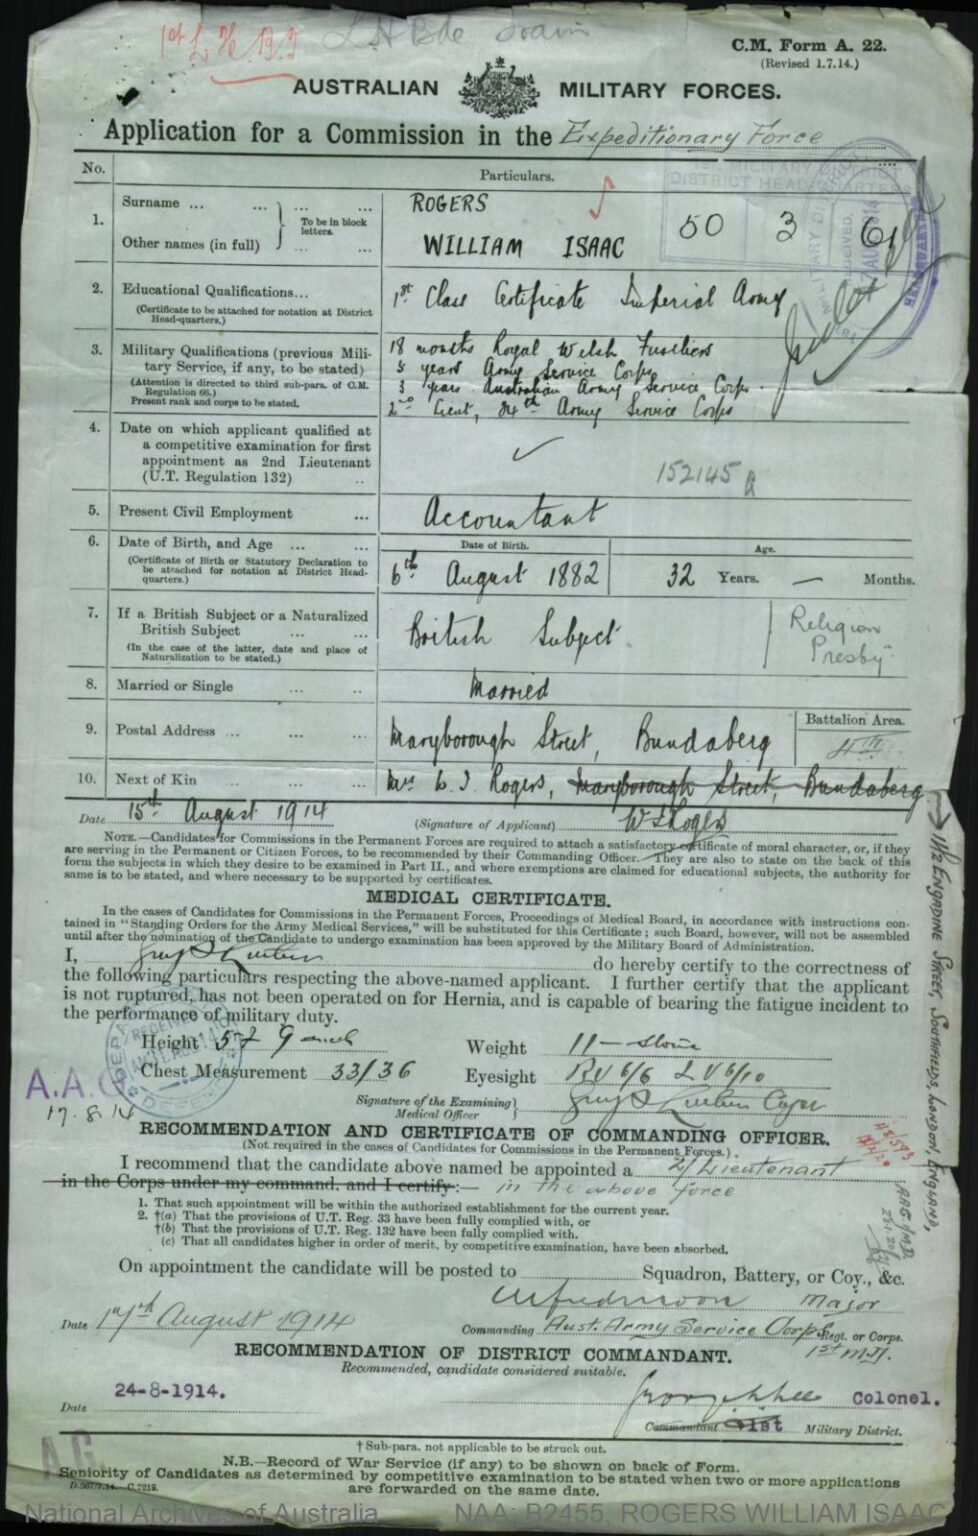 1st L H B T
L H Bde Train
C.M. Form A. 22.
(Revised 1.7.14.)
AUSTRALIAN MILITARY FORCES.
Application for a Commission in the Expeditionary Force
No.
Particulars.
1.
Surname ... ... ... ...
Other names (in full)
To be in block letters.
ROGERS
WILLIAM ISAAC
50 3 6
MILITARY DISTRICT
DISTRICT HEADQUARTERS
RECEIVED
17 AUG 1914
HEADQUARTERS
2.
Educational Qualifications...
(Certificate to be attached for notation at District Head-quarters.)
1st Class Certificate Imperial Army
3.
Military Qualifications (previous Military Service, if any, to be stated)
(Attention is directed to third sub-para. of C.M. Regulation 66.)
Present rank and corps to be stated.
18 months Royal Welsh Fusiliers
8 years Army Service Corps
3 years Australian Army Service Corps.
2nd Lieut, 24th Army Service Corps
4.
Date on which applicant qualified at a competitive examination for first appointment as 2nd Lieutenant (U.T. Regulation 132) ..
152145
5.
Present Civil Employment ...
Accountant
6.
Date of Birth, and Age ... ...
(Certificate of Birth or Statutory Declaration to be attached for notation at District Head-quarters.)
Date of Birth.
6th August 1882
Age.
32 Years. — Months.
7.
If a British Subject or a Naturalized British Subject ... ...
(In the case of the latter, date and place of Naturalization to be stated.)
British Subject.
Religion
Presby
8.
Married or Single ... ..
Married
9.
Postal Address ... ... ...
Maryborough Street, Bundaberg
Battalion Area.
4th
10.
Next of Kin ... ... ...
Mrs W. I. Rogers, Maryborough Street, Bundaberg
11/2 ENGADINE STREET, SOUTHFIELDS, LONDON, ENGLAND,
Date 15th August 1914
(Signature of Applicant) W I Rogers
NOTE.—Candidates for Commissions in the Permanent Forces are required to attach a satisfactory certificate of moral character, or, if they
are serving in the Permanent or Citizen Forces, to be recommended by their Commanding Officer. They are also to state on the back of this
form the subjects in which they desire to be examined in Part II., and where exemptions are claimed for educational subjects, the authority for
same is to be stated, and where necessary to be supported by certificates.
MEDICAL CERTIFICATE.
In the cases of Candidates for Commissions in the Permanent Forces, Proceedings of Medical Board, in accordance with instructions con-
tained in "Standing Orders for the Army Medical Services," will be substituted for this Certificate; such Board, however, will not be assembled
until after the nomination of the Candidate to undergo examination has been approved by the Military Board of Administration.
I, do hereby certify to the correctness of
the following particulars respecting the above-named applicant. I further certify that the applicant
is not ruptured, has not been operated on for Hernia, and is capable of bearing the fatigue incident to
the performance of military duty.
Height 5 f 9 inch
Weight 11 — stone
Chest Measurement 33/36
Eyesight RV 6/6 LV 6/10
RECEIVED
DEFENCE
A.A.G
17.8.14
Signature of the Examining Medical Officer
RECOMMENDATION AND CERTIFICATE OF COMMANDING OFFICER.
(Not required in the cases of Candidates for Commissions in the Permanent Forces.)
I recommend that the candidate above named be appointed a 2/Lieutenant
in the Corps under my command. and I certify:— in the above force
1. That such appointment will be within the authorized establishment for the current year.
2. †(a) That the provisions of U.T. Reg. 33 have been fully complied with, or
†(b) That the provisions of U.T. Reg. 132 have been fully complied with.
(c) That all candidates higher in order of merit, by competitive examination, have been absorbed.
On appointment the candidate will be posted to Squadron, Battery, or Coy., &c.
Alfred Moon Major
Date 17th August 1914
Commanding Aust. Army Service Corps Regt. or Corps.
1st M.D.
RECOMMENDATION OF DISTRICT COMMANDANT.
Recommended, candidate considered suitable.
Date 24-8-1914.
Colonel.
Commandant 1st Military District.
A.G.
† Sub-para. not applicable to be struck out.
N.B.—Record of War Service (if any) to be shown on back of Form.
Seniority of Candidates as determined by competitive examination to be stated when two or more applications
are forwarded on the same date.
D.367/7.14.—C.7218.
National Archives of Australia
NAA: B2455, ROGERS WILLIAM ISAAC